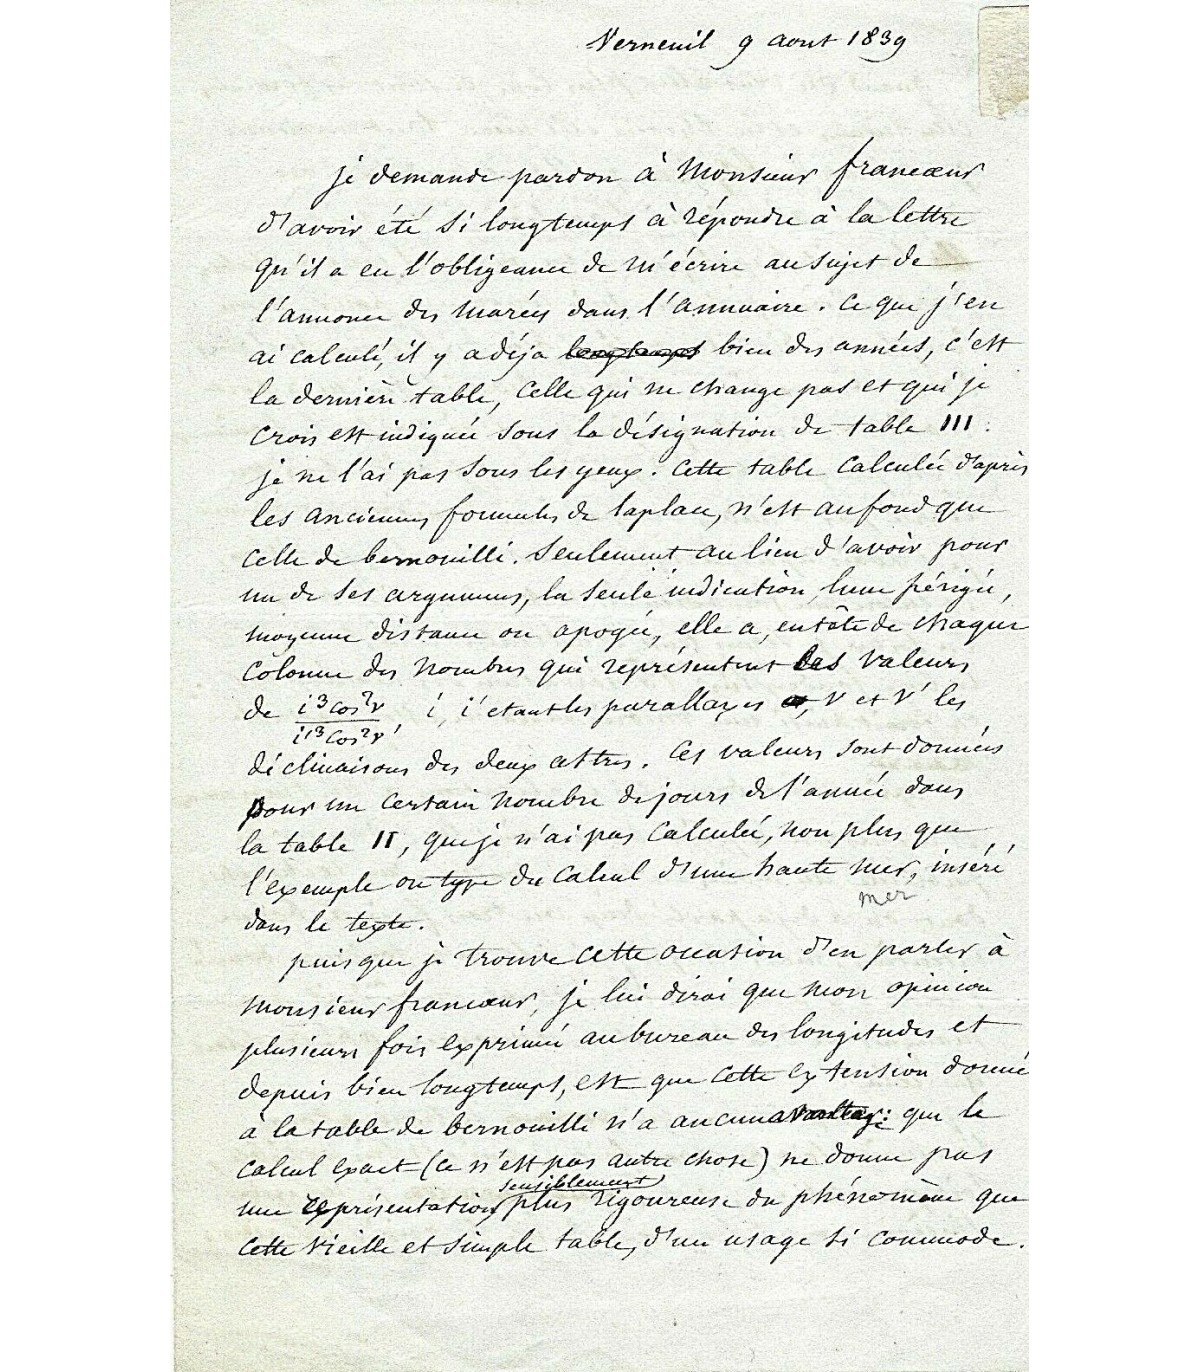 Verneuil 9 aout 1839
je demande pardon à Monsieur francœur
d'avoir été si longtemps à répondre à la lettre
qu'il a eu l'obligeance de m'écrire au sujet de
l'annonce des marées dans l'annuaire. ce que j'en
ai calculé, il y a déja longtemps bien des années, c'est
la dernière table, celle qui ne change pas et qui je
crois est indiquée sous la désignation de table III.
je ne l'ai pas sous les yeux. cette table calculée d'après
les anciennes formules de laplace, n'est au fond que
celle de bernouilli. seulement au lieu d'avoir pour
un de ses argumens, la seule indication, lune périgée,
moyenne distance ou apogée, elle a, en tête de chaque
colonne des nombres qui représentent les valeurs
de i³cos²v / i'³cos²v', i, i' etant les parallaxes, v et v' les
déclinaisons des deux astres. Ces valeurs sont données
pour un certain nombre de jours de l'année dans
la table II, que je n'ai pas calculée, non plus que
l'exemple ou type du calcul d'une haute mer, inséré
mer
dans le texte.
puisque je trouve cette occasion d'en parler à
Monsieur francœur, je lui dirai que mon opinion
plusieurs fois exprimée au bureau des longitudes et
depuis bien longtemps, est que cette extension donnée
à la table de bernouilli n'a aucun avantage: que le
calcul exact (ce n'est pas autre chose) ne donne pas
sensiblement
une représentation plus rigoureuse du phénomène que
cette vieille et simple table, d'un usage si commode.